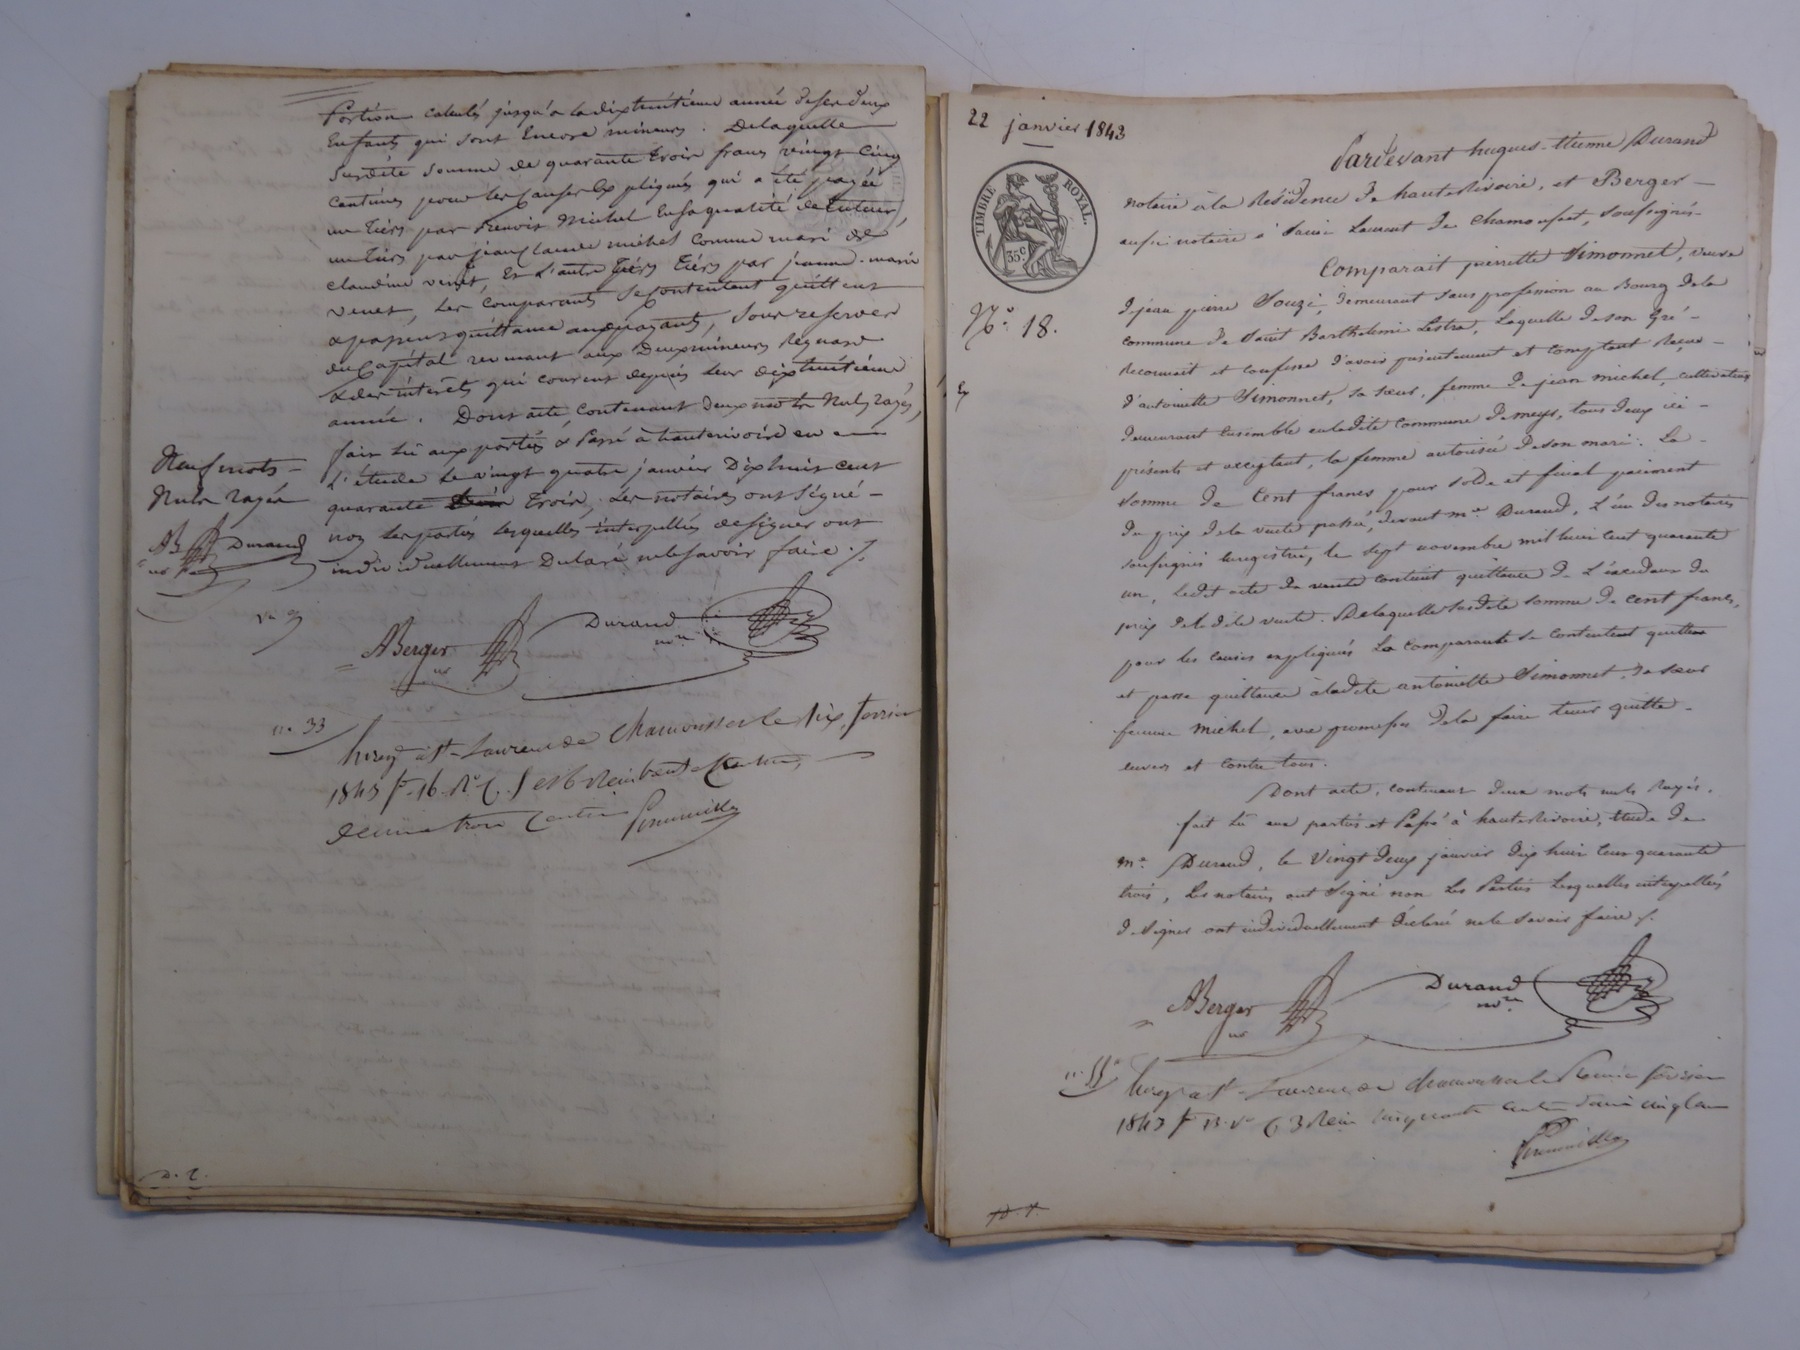 Portion calculés jusqu'a la dixhuitième année de ses deux
Enfants qui sont Encore mineurs. Delaquelle
Susdite Somme de quarante trois francs vingt Cinq
Centimes pour les Causes Expliqués qui a été payée
un tiers par Benoit Michel En sa qualité de tuteur,
un tiers par jean Claude michel Comme mari de
Claudine venet, Et L'autre tiers par jeanne-marie
venet, Les Comparants Se Contentent quittent
& passent quittance aux payants, Sous reserves
du Capital revenant aux Deux mineurs
& des intérêts qui courent depuis leur dixhuitième
année. Dont acte, Contenant Deux mots Nuls rayés,
fait lû aux parties & Passé à hauterivoire en
L'étude Le vingt quatre janvier Dix huit cent
quarante trois, Les notaires ont Signé
non Les parties lesquelles interpellées de Signer ont
individuellement Déclaré ne le Savoir faire ./.
Neuf mots
Nuls rayés
AB Durand
ABerger
Durand
nore
n.. 33
Enreg. à St. Laurent de Chamousset le dix février
1843 f° 16
Decime trois Centimes
D. E.
22 janvier 1843
TIMBRE ROYAL.
35 C
N°. 18.
Pardevant hugues-Etienne Durand
notaire à la Résidence de hauterivoire, et Berger
aussi notaire à Saint Laurent de Chamousset, Soussignés
Comparait pierrette Simonnet, veuve
de jean pierre Souzi, demeurant Sans profession au Bourg de la
commune de Saint Barthelemi Lestra, Laquelle de son gré
Reconnait et confesse d'avoir présentement et comptant Reçu
d'antoinette Simonnet, Sa Sœur, femme de jean michel, cultivateur
demeurant Ensemble en ladite Commune de meys, tous deux ici
présents et acceptant, la femme autorisée de son mari. La
Somme de Cent francs pour Solde et final paiement
du prix de la vente passée, devant me. Durand, L'un des notaires
soussignés Enregistré, le Sept novembre mil huit cent quarante
un, Ledit acte de vente contient quittance de L'excédant du
prix de ladite vente. Delaquelle Susdite Somme de Cent francs,
pour les causes expliqués La Comparante Se Contentent quitte
et passe quittance à ladite antoinette Simonnet, Sa Sœur
femme Michel, avec promesse de la faire tenir quitte
envers et contre tous.
Dont acte, contenant deux mots nuls Rayés.
fait lû aux parties et Passé à hauterivoire, Etude de
me. Durand, le Vingt deux janvier dix huit Cent quarante
trois, Les notaires ont Signé non Les Parties Lesquelles interpellées
de Signer ont individuellement déclaré ne le Savoir faire ./.
ABerger
Durand
nore.
Enreg. à St. Laurent de Chamousset le février
1843 f° 13 v° C. 3